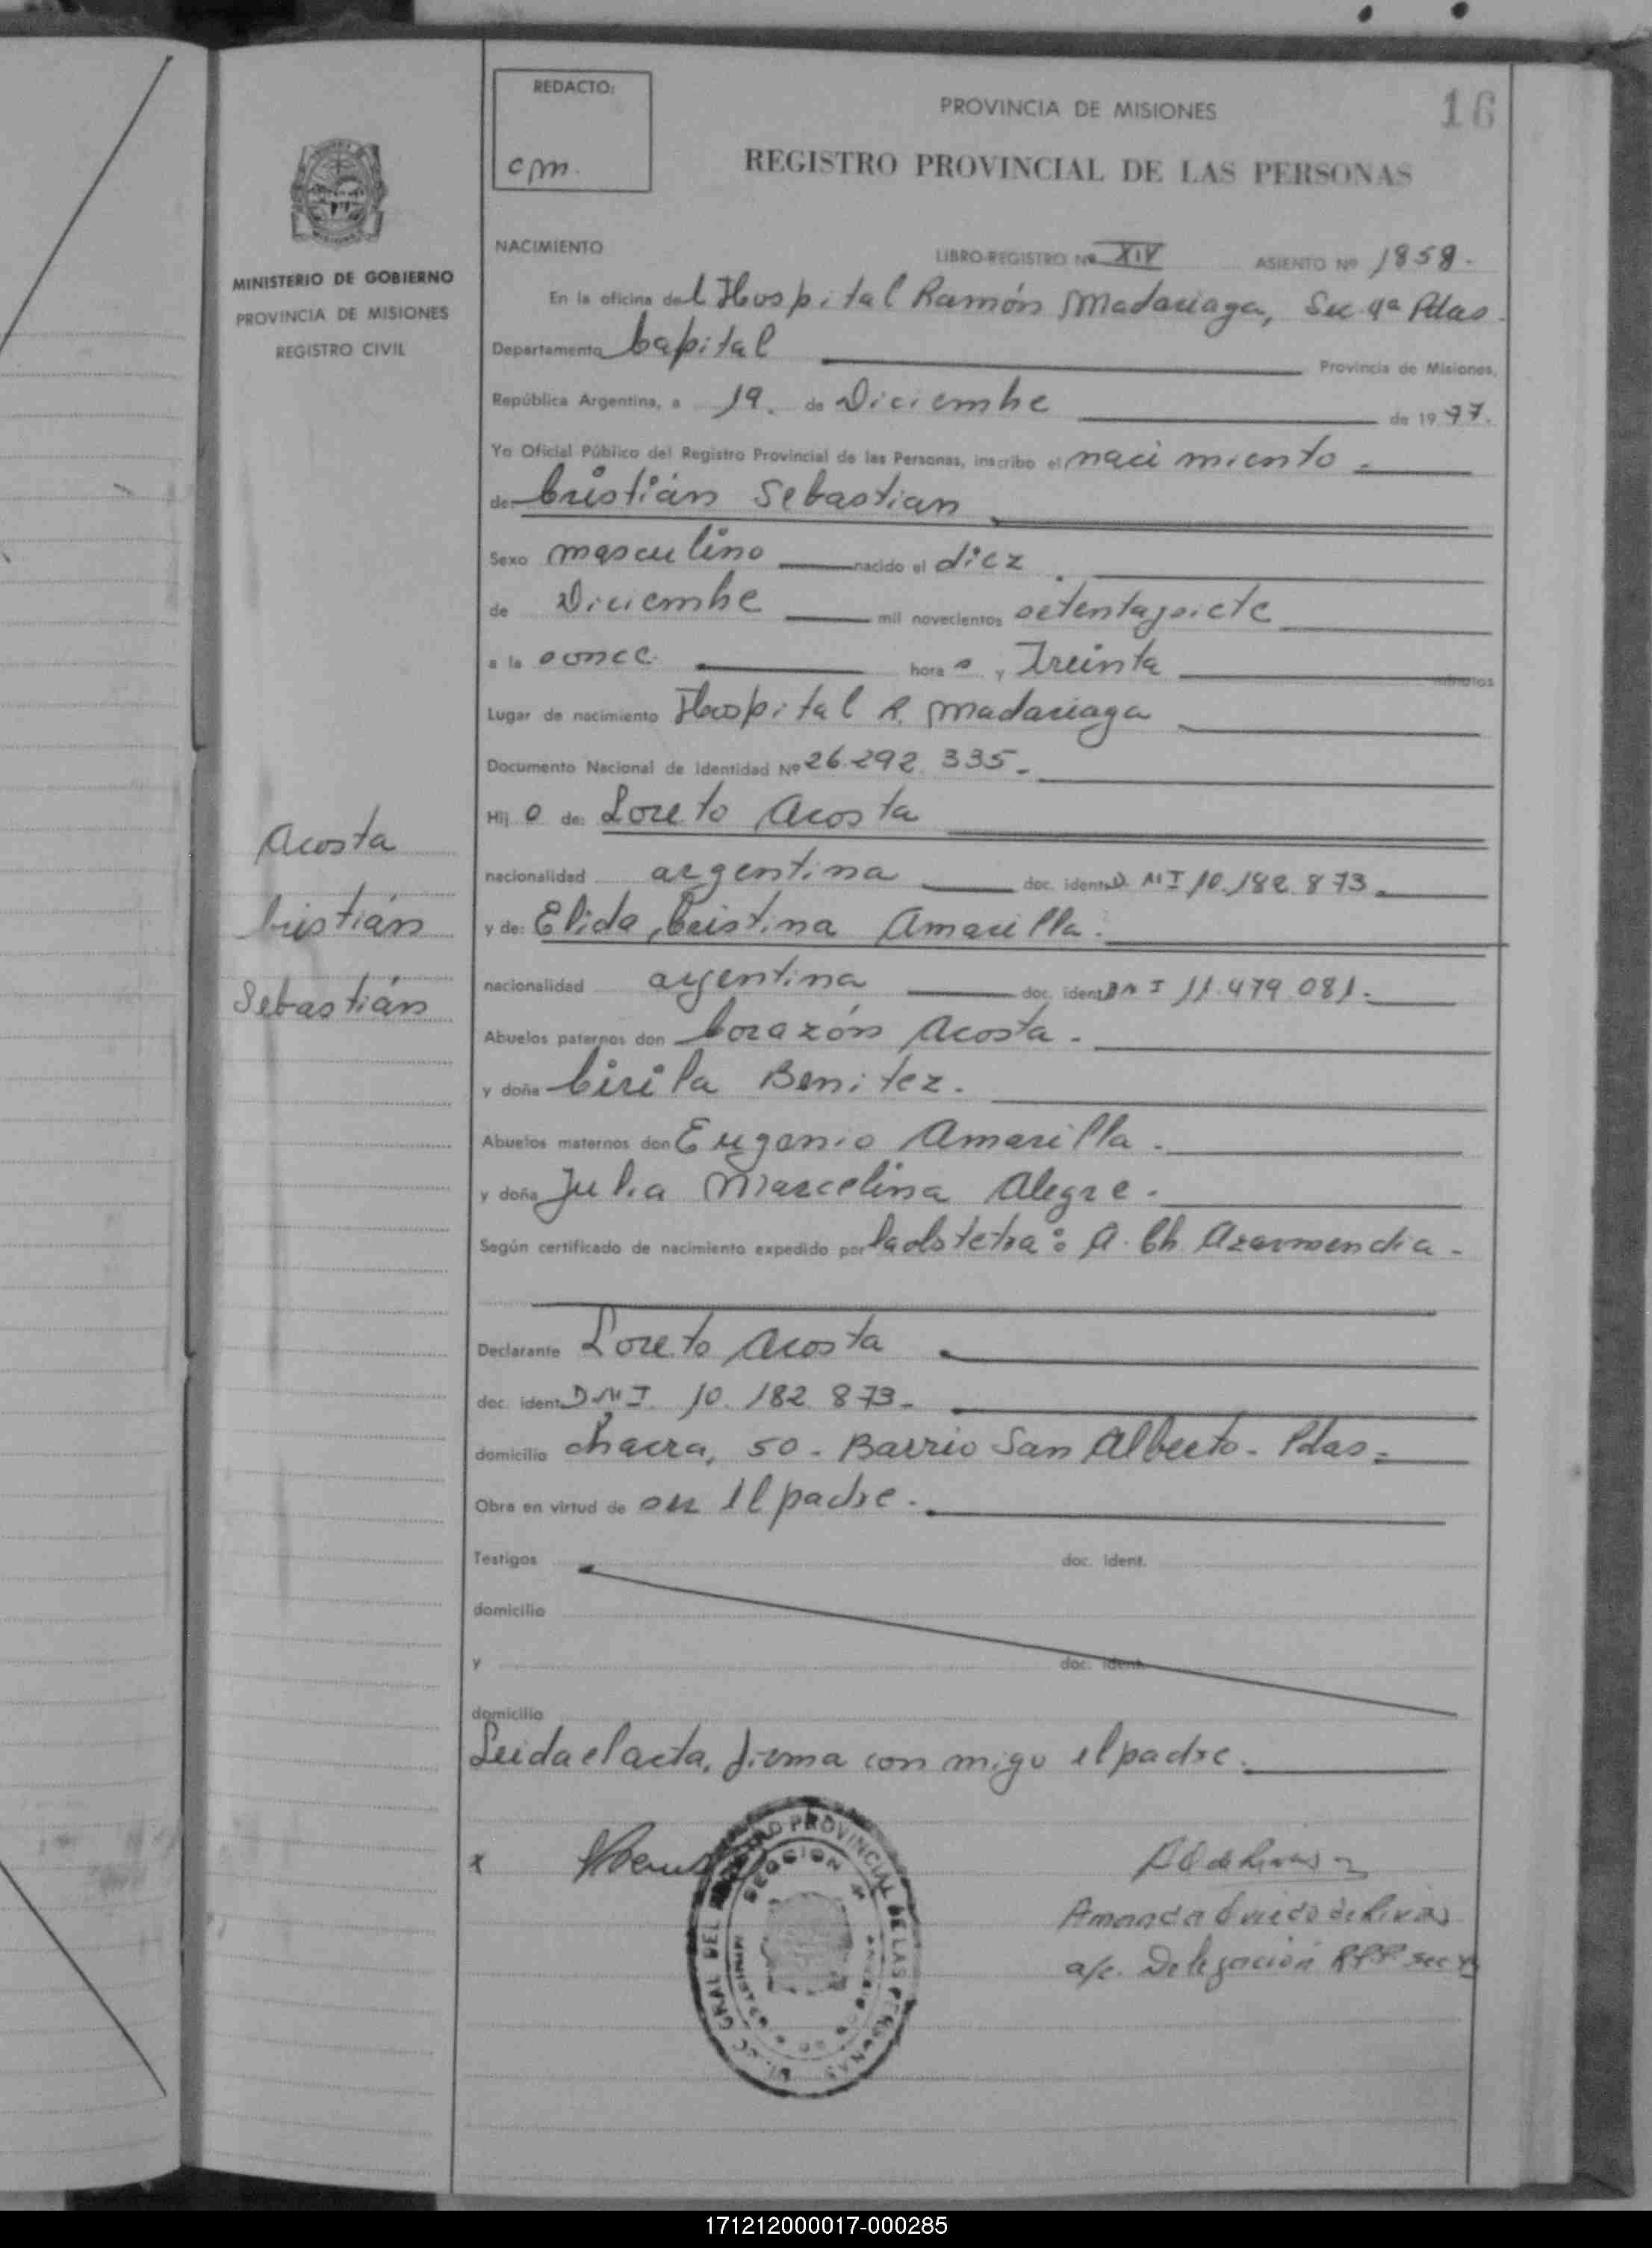 REDACTO:
cpm.
16
PROVINCIA DE MISIONES
REGISTRO PROVINCIAL DE LAS PERSONAS
MINISTERIO DE GOBIERNO
PROVINCIA DE MISIONES
REGISTRO CIVIL
Acosta
Cristián
Sebastián
NACIMIENTO LIBRO-REGISTRO Nº XIV ASIENTO Nº 1858.-
En la oficina del Hospital Ramón Madariaga, Sec 4ª Pdas.
Departamento Capital Provincia de Misiones,
República Argentina, a 19. de Diciembre de 1977.
Yo Oficial Público del Registro Provincial de las Personas, inscribo el nacimiento.
de: Cristián Sebastian
Sexo masculino nacido el diez.
de Diciembre mil novecientos setentaysiete
a la s once. hora s y Treinta minutos
Lugar de nacimiento Hospital R. Madariaga
Documento Nacional de Identidad Nº 26.292.335-
Hij o de: Loreto Acosta
nacionalidad argentina doc. ident. D.N.I 10.182.873-
y de: Elida Cristina Amarilla.
nacionalidad argentina doc. ident. D N I 11.479.081.-
Abuelos paternos don Corazón Acosta -
y doña Cirila Benitez.
Abuelos maternos don Eugenio Amarilla -
y doña Julia Marcelina Alegre.
Según certificado de nacimiento expedido por la obstetra: A. Ch. Azarmendia -
Declarante Loreto Acosta
doc. ident. D.N.I. 10.182.873-
domicilio chacra, 50 - Barrio San Alberto - Pdas-
Obra en virtud de ser el padre.
Testigos doc. ident.
domicilio
y doc. ident.
domicilio
Leida el acta, firma con migo el padre.
x
DIREC. GRAL DEL REGISTRO PROVINCIAL DE LAS PERSONAS
SECCION 4ª
Amanda Oviedo de Rivas
a/c. Delegación RPP sec 4ª
171212000017-000285